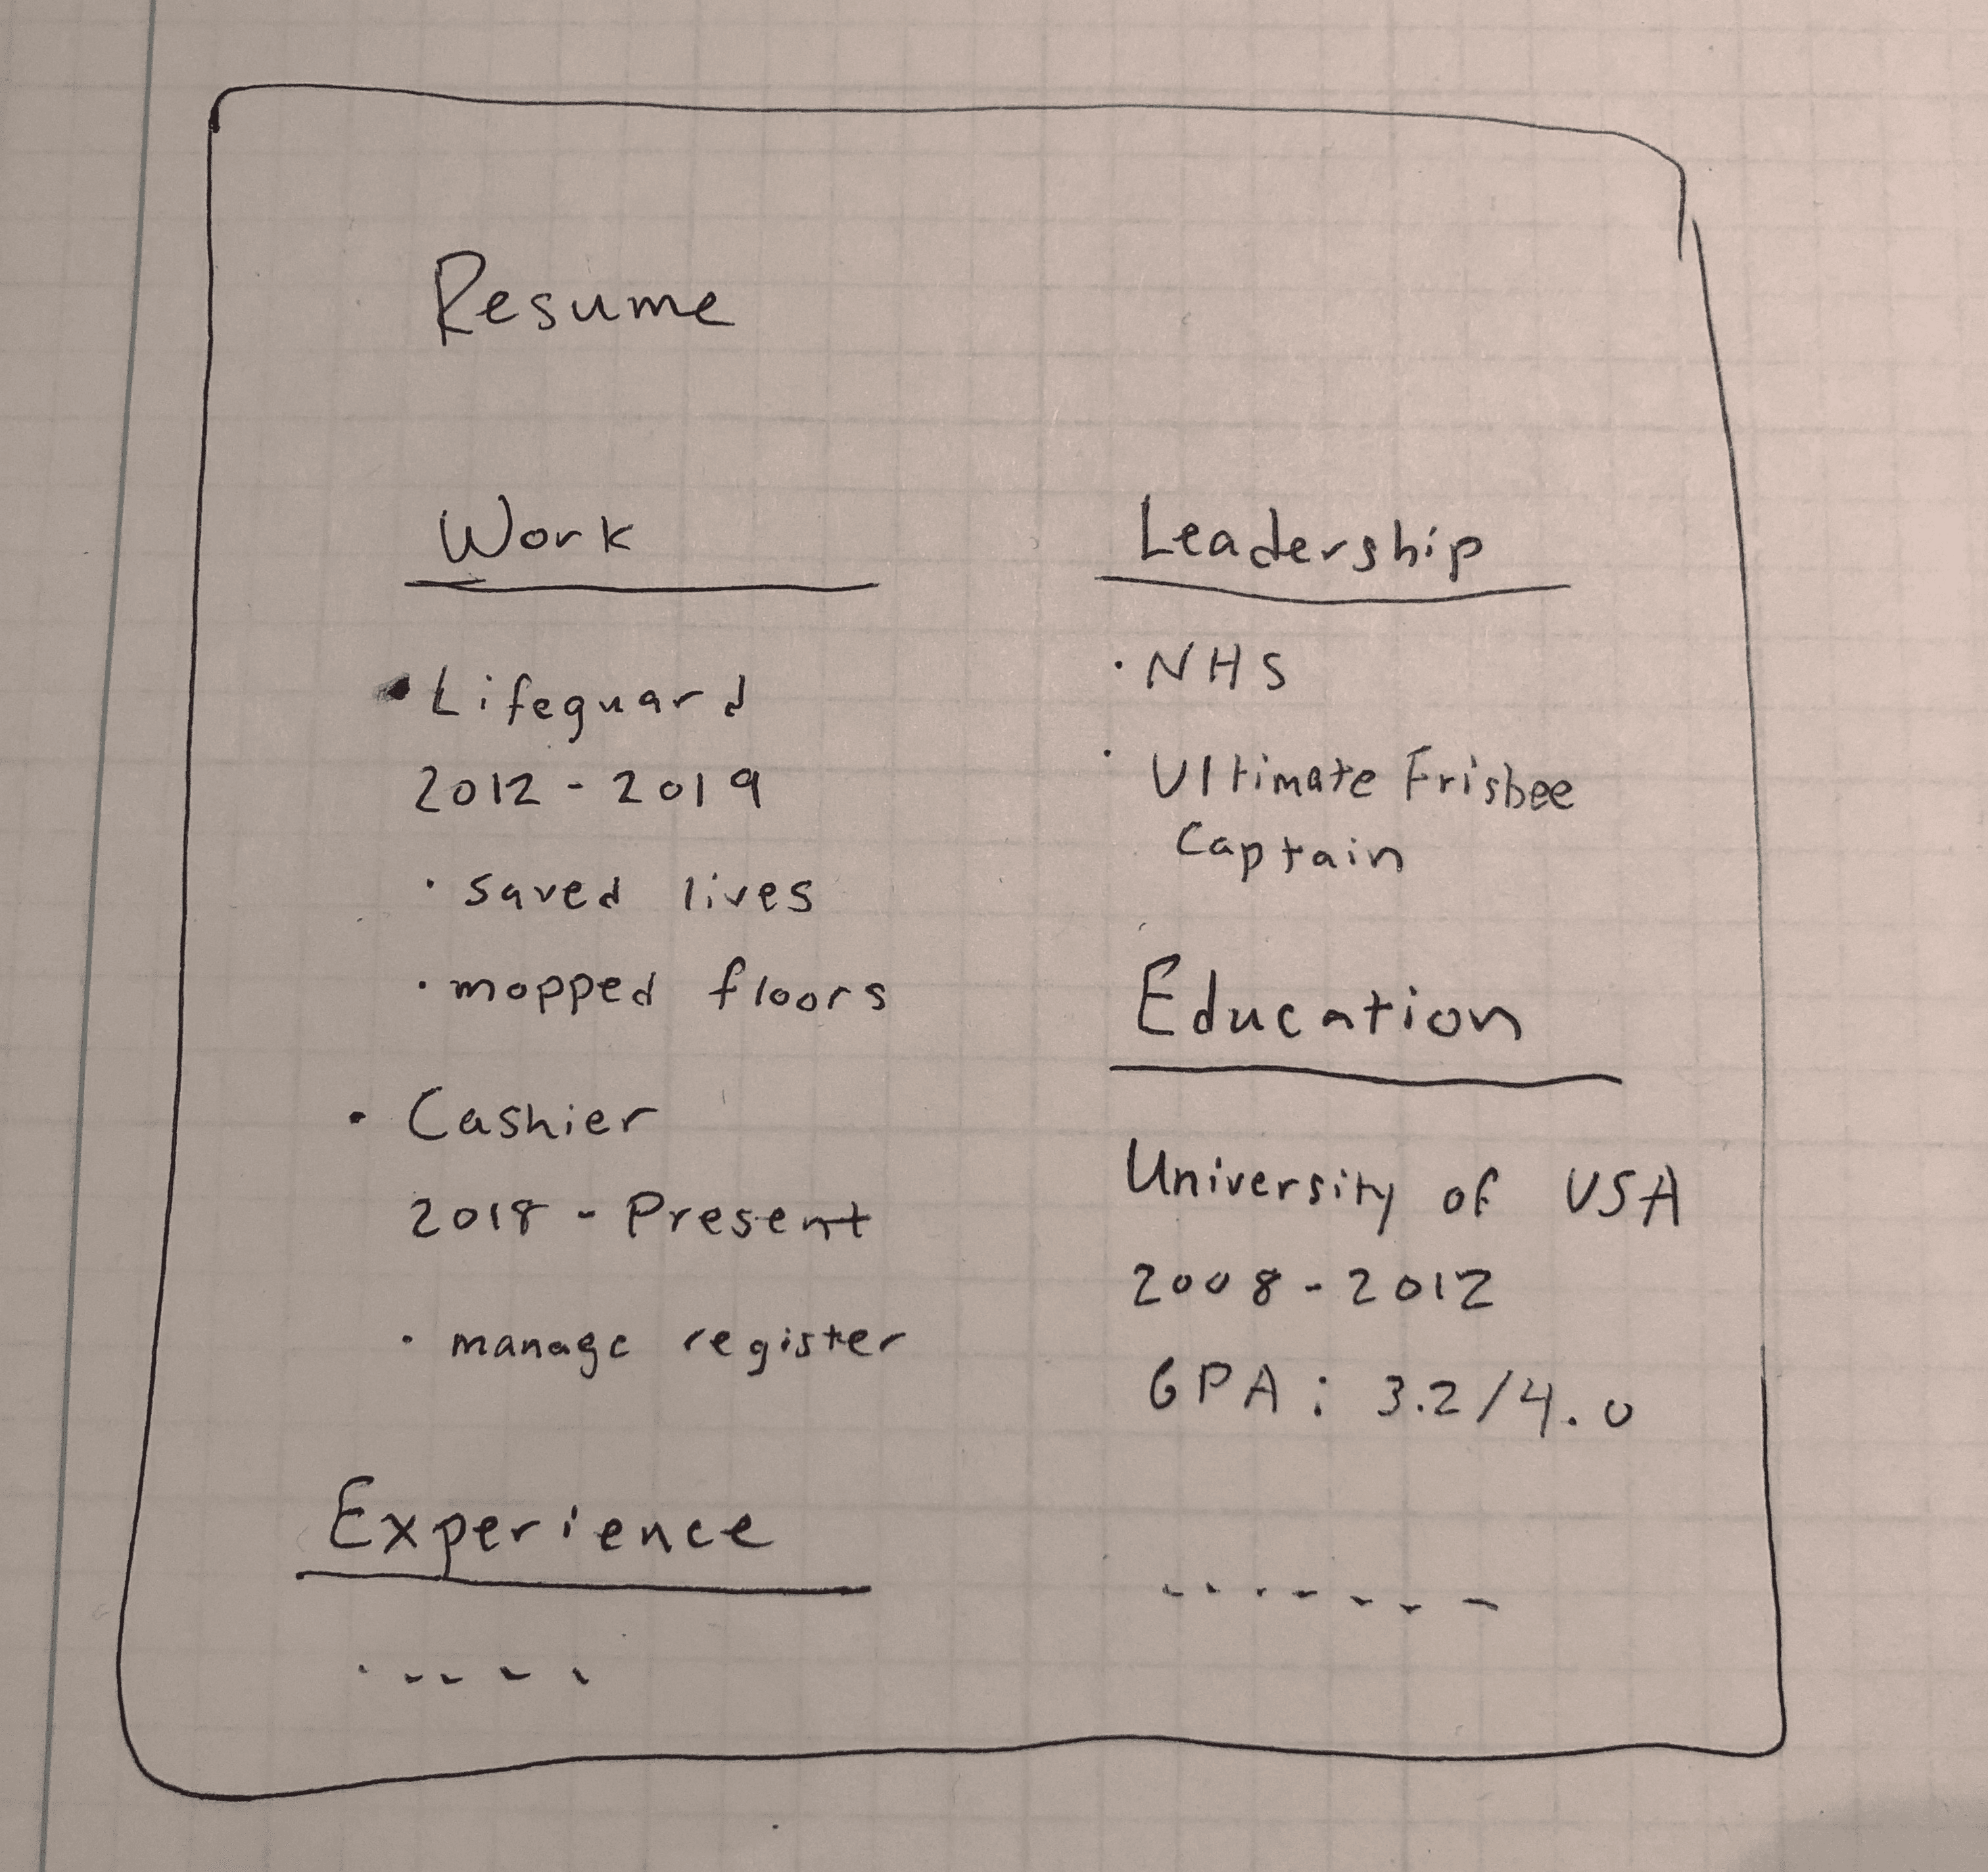 Resume
Work
• Lifeguard
2012 - 2019
• saved lives
• mopped floors
• Cashier
2018 - Present
• manage register
Experience
Leadership
• NHS
• Ultimate Frisbee
Captain
Education
University of USA
2008 - 2012
GPA : 3.2/4.0